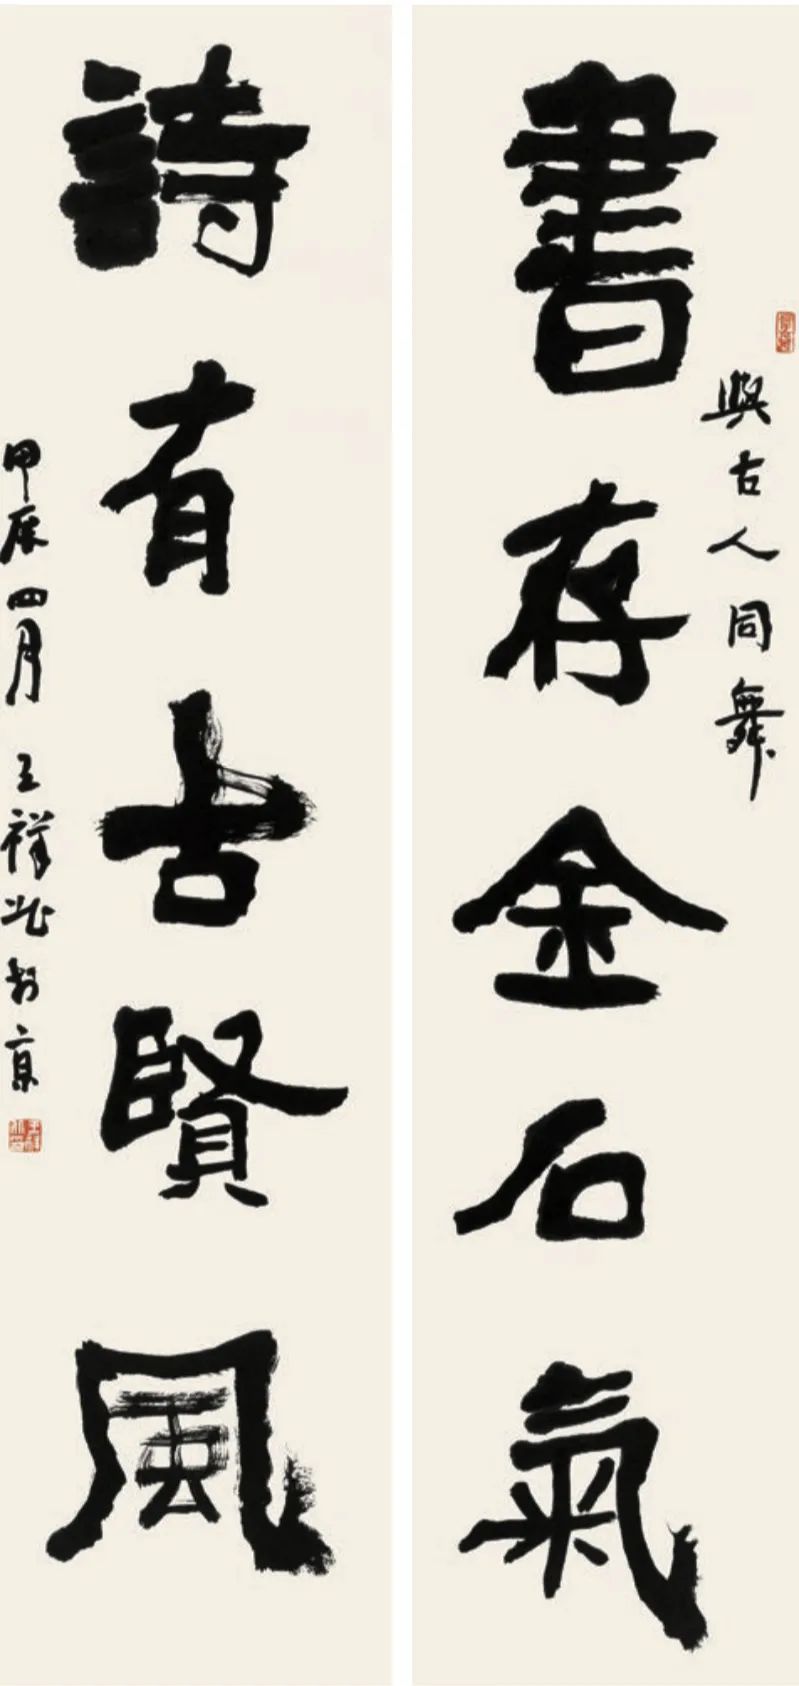 書存金石氣
與古人同舞
詩有古賢風
甲辰四月 王祥北於京